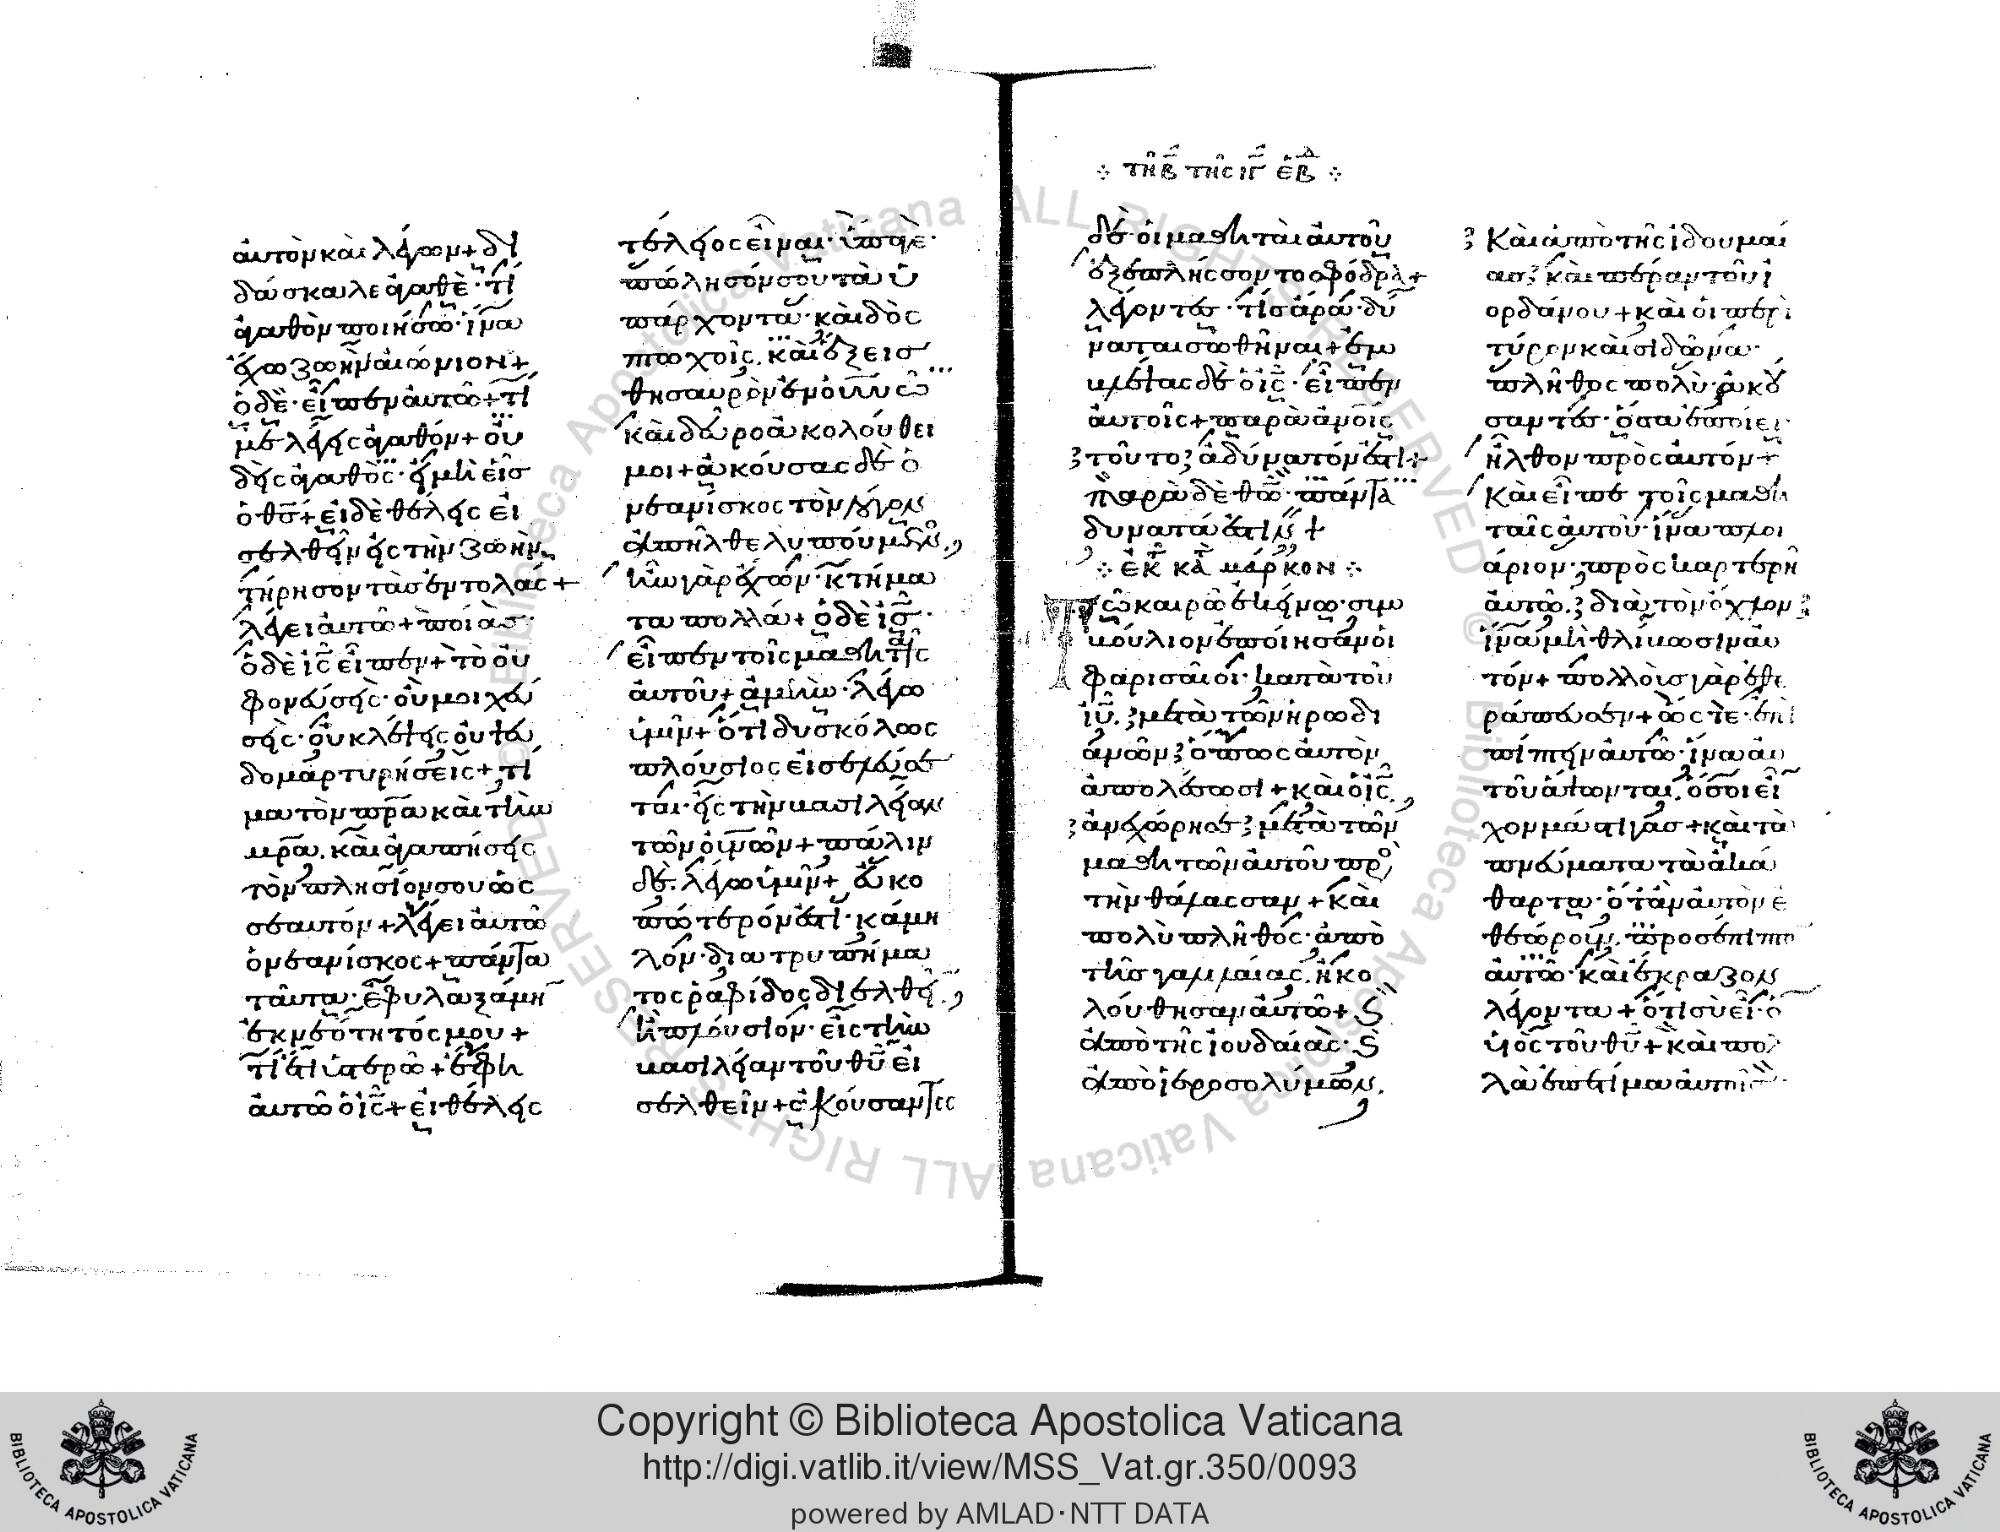 αὐτὸν καὶ λέγων + δι
δάσκαλε ἀγαθὲ · τί
ἀγαθὸν ποιήσω · ἵνα
ἔχω ζωὴν αἰώνιον +
ὁ δὲ · εἶπεν αὐτῶ + τί
με λέγεις ἀγαθόν + οὐ
δεὶς ἀγαθὸς · εἰ μὴ εἷσ
ὁ θσ + εἰ δὲ θέλεις εἰ
σελθεῖν εἰς τὴν ζωὴν
τήρησον τὰσ ἐντολάς +
λέγει αὐτῶ + ποίασ ·
ὁ δὲ ις εἶπεν + τὸ οὐ
φονεύσεις · οὐ μοιχεύ
σεις · οὐ κλέψεις οὐ ψευ
δομαρτυρήσεις + τί
μα τὸν πρα καὶ τὴν
μρα · καὶ ἀγαπήσεις
τὸν πλησίον σου ὡς
σεαυτόν + λέγει αὐτῶ
ὁ νεανίσκος + πάντα
ταῦτα · ἐφυλαξάμην
ἐκ νεότητός μου +
τί ἔτι ὑστερῶ + ἔφη
αὐτῶ ὁ ις + εἰ θέλεις
τέλειος εἶναι · ὕπαγε ·
πώλησόν σου τὰ ὑ
πάρχοντα · καὶ δὸς
πτωχοῖς · καὶ ἕξεισ
θησαυρὸν ἐν οὐνω
καὶ δεῦρο ἀκολούθει
μοι + ἀκούσας δὲ ὁ
νεανίσκος τὸν λόγον
ἀπῆλθε λυπούμενος
ἦν γὰρ ἔχων · κτήμα
τα πολλά + ὁ δὲ ις ·
εἶπεν τοῖς μαθηταῖς
αὐτοῦ + ἀμὴν · λέγω
ὑμῖν + ὅτι δυσκόλως
πλούσιος εἰσελεύσε
ται · εἰς τὴν βασιλείαν
τῶν οὐνῶν + πάλιν
δὲ · λέγω ὑμῖν + εὐκο
πώτερόν ἐστι · κάμη
λον · διὰ τρυπήμα
τος ῥαφίδος διελθεῖν
ἢ πλούσιον · εἰς τὴν
βασιλείαν τοῦ θυ εἰ
σελθεῖν + ἀκούσαντες
τῆ β τῆς ιγ εβδ
δὲ · οἱ μαθηταὶ αὐτοῦ
ἐξεπλήσσοντο σφόδρα +
λέγοντες · τίς ἄρα · δύ
ναται σωθῆναι + ἐμ
βλέψας δὲ ὁ ις · εἶπεν
αὐτοῖς + παρὰ ἀνοις
τοῦτο ἀδύνατόν ἐστι +
παρὰ δὲ θω · πάντα
δυνατά ἐστιν +
ἐκ κατὰ μάρκον
Τῶ καιρῶ ἐκείνω · συμ
βούλιον ἐποίησαν οἱ
φαρισαῖοι · κατὰ τοῦ
ιυ · μετὰ τῶν ἡρωδι
ανῶν ὅπως αὐτὸν
ἀπολέσωσι + καὶ ὁ ις
ἀνεχώρησε μετὰ τῶν
μαθητῶν αὐτοῦ πρὸς
τὴν θάλασσαν + καὶ
πολὺ πλῆθος · ἀπὸ
τῆς γαλιλαίας · ἠκο
λούθησαν αὐτῶ + ϗ
ἀπὸ τῆς ἰουδαίας · ϗ
ἀπὸ ἱεροσολύμων ·
Καὶ ἀπὸ τῆς ἰδουμαί
ασ καὶ πέραν τοῦ ἰ
ορδάνου + καὶ οἱ περὶ
τύρον καὶ σιδῶνα ·
πλῆθος πολὺ · ἀκού
σαντες · ὅσα ἐποίει ·
ἦλθον πρὸς αὐτόν +
Καὶ εἶπε τοῖς μαθη
ταῖς αὐτοῦ · ἵνα πλοι
άριον · προσκαρτερῆ
αὐτῶ · διὰ τὸν ὄχλον
ἵνα μὴ θλίβωσιν αὐ
τόν + πολλοὺσ γὰρ ἐθε
ράπευσεν + ὥς τε · ἐπι
πίπτειν αὐτῶ · ἵνα αὐ
τοῦ ἅψωνται · ὅσοι εἶ
χον μάστιγας + καὶ τὰ
πνεύματα τὰ ἀκά
θαρτα · ὅταν αὐτὸν ἐ
θεώρουν · προσέπιπτον
αὐτῶ · καὶ ἔκραζον
λέγοντα + ὅτι σὺ εἶ · ὁ
υἱὸς τοῦ θυ + καὶ πολ
λὰ ἐπετίμα αὐτοῖς ·
Copyright © Biblioteca Apostolica Vaticana
http://digi.vatlib.it/view/MSS_Vat.gr.350/0093
powered by AMLAD·NTT DATA
BIBLIOTECA APOSTOLICA VATICANA
BIBLIOTECA APOSTOLICA VATICANA
© Biblioteca Apostolica Vaticana ALL RIGHTS RESERVED
© Biblioteca Apostolica Vaticana ALL RIGHTS RESERVED